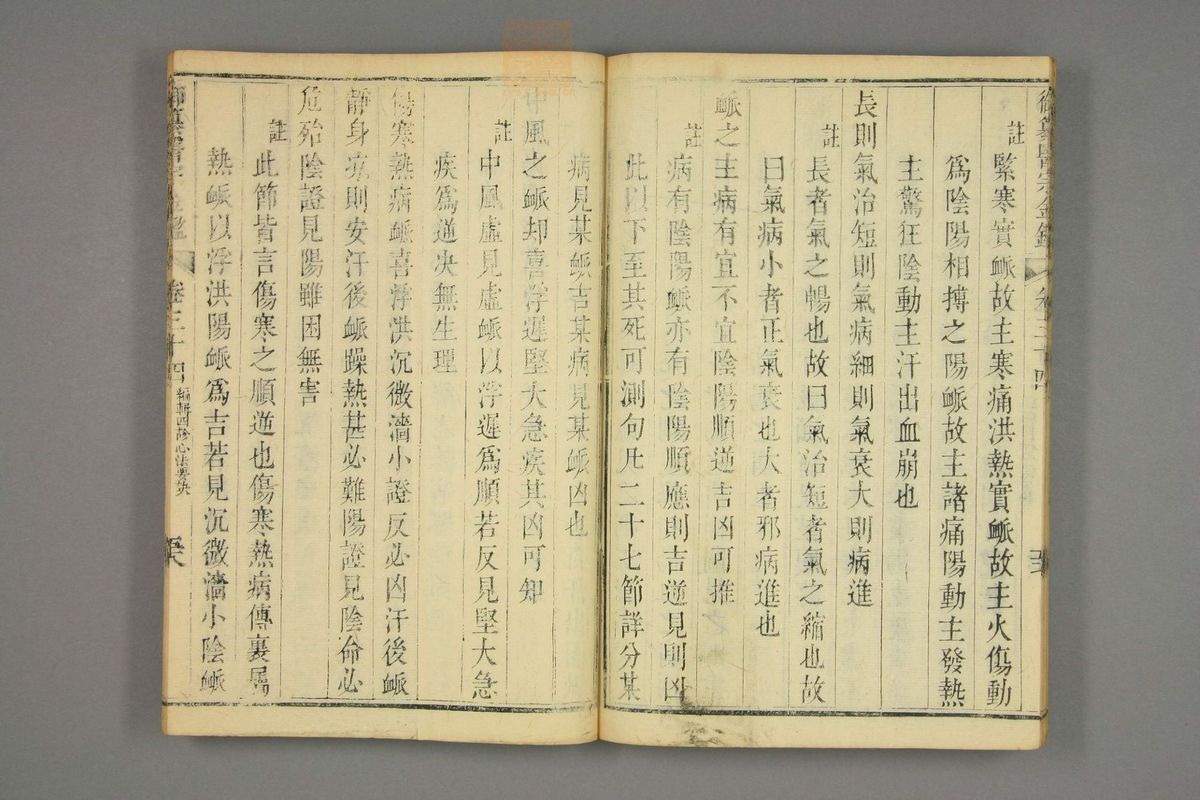 御纂醫宗金鑑
卷三十四
註
緊寒實脈故主寒痛洪熱實脈故主火傷動
爲陰陽相搏之陽脈故主諸痛陽動主發熱
主驚狂陰動主汗出血崩也
長則氣治短則氣病細則氣衰大則病進
註
長者氣之暢也故曰氣治短者氣之縮也故
曰氣病小者正氣衰也大者邪病進也
脈之主病有宜不宜陰陽順逆吉凶可推
註
病有陰陽脈亦有陰陽順應則吉逆見則凶
此以下至其死可測句凡二十七節詳分某
病見某脈吉某病見某脈凶也
中風之脈却喜浮遲堅大急疾其凶可知
註
中風虛見虛脈以浮遲爲順若反見堅大急
疾爲逆决無生理
傷寒熱病脈喜浮洪沉微濇小證反必凶汗後脈
靜身凉則安汗後脈躁熱甚必難陽證見陰命必
危殆陰證見陽雖困無害
註
此節皆言傷寒之順逆也傷寒熱病傳裏屬
熱脈以浮洪陽脈爲吉若見沉微濇小陰脈
御纂醫宗金鑑
卷三十四
編輯四診心法要訣